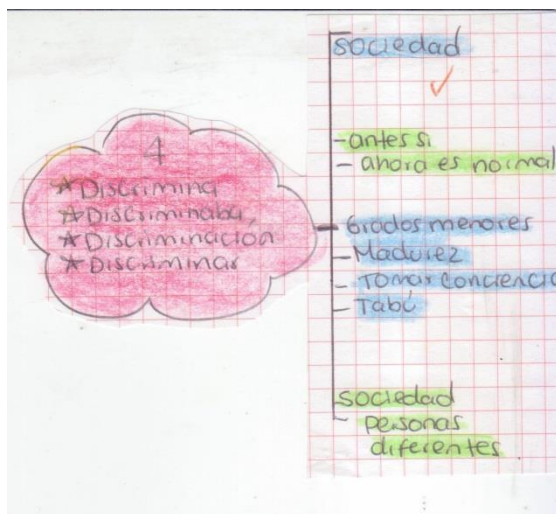 4
* Discrimina
* Discriminaba,
* Discriminación
* Discriminar
sociedad
- antes si
- ahora es normal
Grados menores
- Madurez
- Tomar conciencia
- Tabú
sociedad
- personas
diferentes